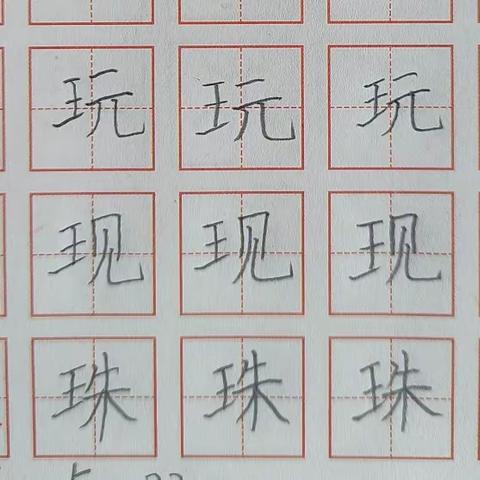 玩 玩 玩
现 现 现
珠 珠 珠